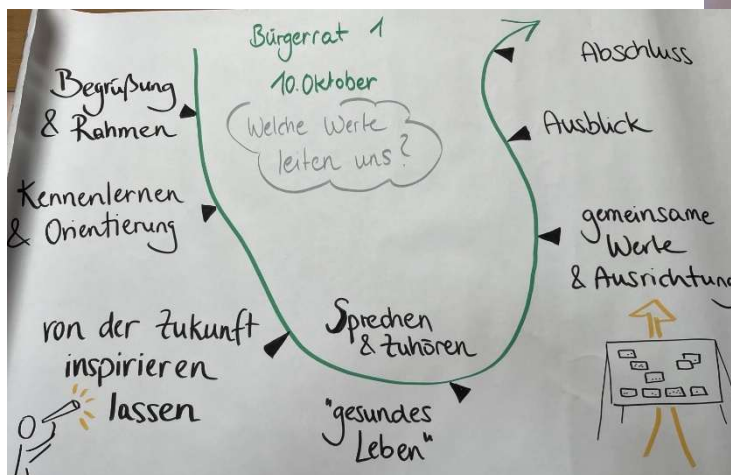 Bürgerrat 1
10. Oktober
Welche Werte
leiten uns?
Begrüßung
& Rahmen
Kennenlernen
& Orientierung
von der Zukunft
inspirieren
lassen
Sprechen
& Zuhören
"gesundes
Leben"
gemeinsame
Werte
& Ausrichtung
Ausblick
Abschluss